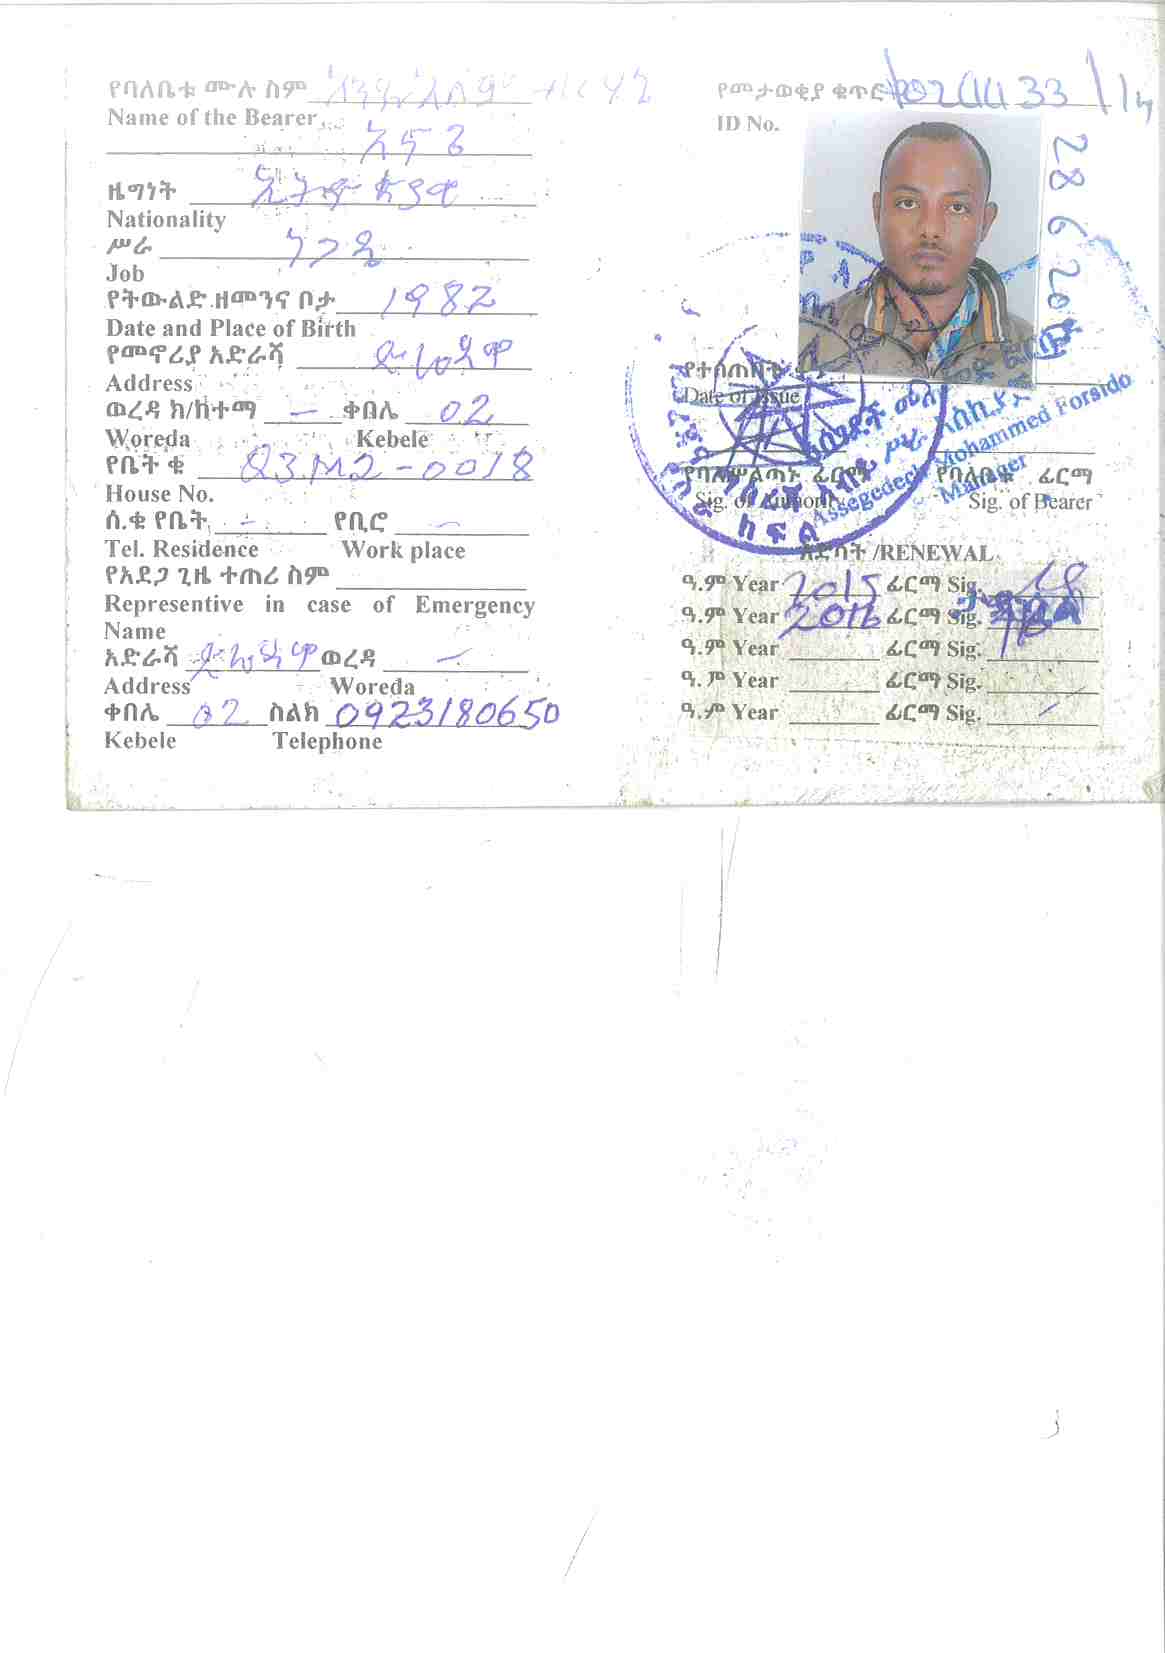 የባለቤቱ ሙሉ ስም
Name of the Bearer
ዜግነት ኢትዮጵያዊ
Nationality
ሥራ ነጋዴ
Job
የትውልድ ዘመንና ቦታ 1982
Date and Place of Birth
የመኖሪያ አድራሻ ድሬዳዋ
Address
ወረዳ ክ/ከተማ — ቀበሌ 02
Woreda Kebele
የቤት ቁ
House No.
ስ.ቁ የቤት - የቢሮ -
Tel. Residence Work place
የአደጋ ጊዜ ተጠሪ ስም
Representive in case of Emergency
Name
አድራሻ ድሬዳዋ ወረዳ —
Address Woreda
ቀበሌ 02 ስልክ 0923180650
Kebele Telephone
የመታወቂያ ቁጥር
ID No.
28 6 20
የተሰጠበት
Date of Issue
የባለሥልጣኑ ፊርማ የባለቤቱ ፊርማ
Sig. of Authority Sig. of Bearer
Assegedech Mohammed Forsido
Manager
እድሳት /RENEWAL
ዓ.ም Year 2015 ፊርማ Sig.
ዓ.ም Year 2016 ፊርማ Sig.
ዓ.ም Year ፊርማ Sig.
ዓ.ም Year ፊርማ Sig.
ዓ.ም Year ፊርማ Sig.